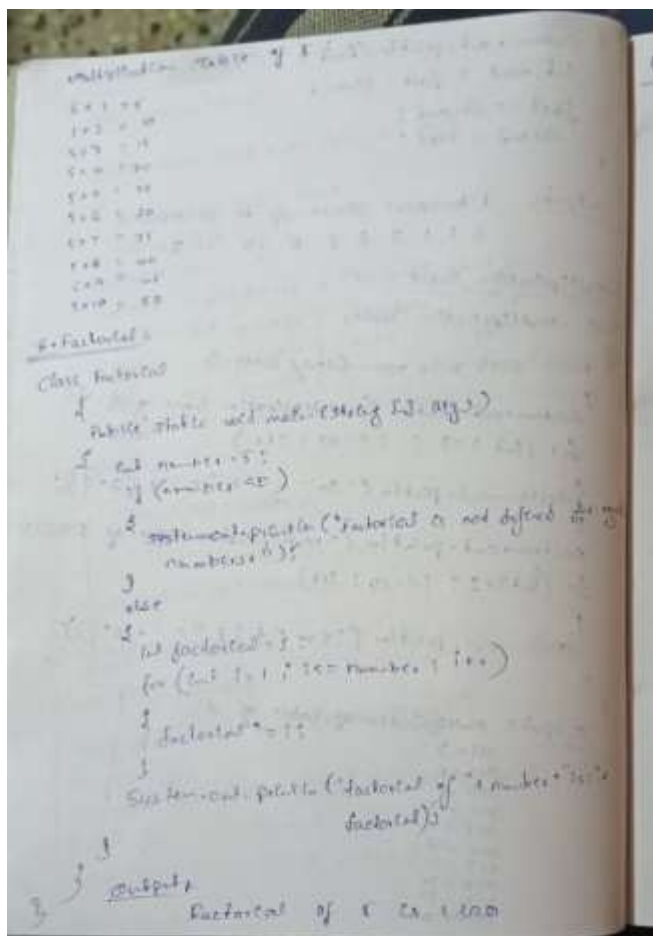 multiplication table of 5
5 x 1 = 5
5 x 2 = 10
5 x 3 = 15
5 x 4 = 20
5 x 5 = 25
5 x 6 = 30
5 x 7 = 35
5 x 8 = 40
5 x 9 = 45
5 x 10 = 50
Factorial:
Class Factorial
{
Public static void main (String [] args)
{ int number = 5;
if (number
{ System.out.println ("Factorial is not defined for
numbers. ");
}
else
{
int factorial = 1;
for (int i = 1; i <= number; i++)
{
factorial * = i;
}
System.out.println ("factorial of " + number + " is: " +
factorial);
}
}
}
Output
Factorial of 5 is